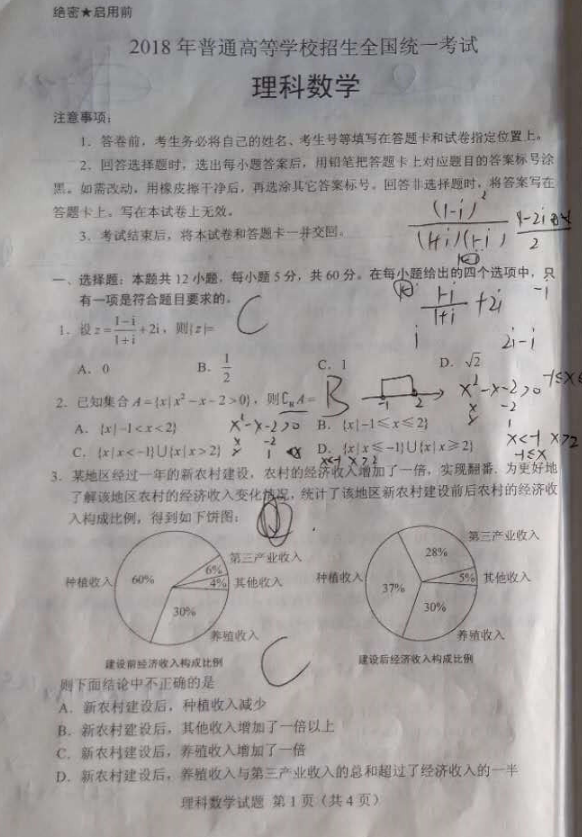 绝密★启用前
2018 年普通高等学校招生全国统一考试
理科数学
注意事项：
1．答卷前，考生务必将自己的姓名、考生号等填写在答题卡和试卷指定位置上。
2．回答选择题时，选出每小题答案后，用铅笔把答题卡上对应题目的答案标号涂
黑。如需改动，用橡皮擦干净后，再选涂其它答案标号。回答非选择题时，将答案写在
答题卡上。写在本试卷上无效。
3．考试结束后，将本试卷和答题卡一并交回。
(1-i)²
(1+i)(1-i)
2
一、选择题：本题共 12 小题，每小题 5 分，共 60 分。在每小题给出的四个选项中，只
有一项是符合题目要求的。
1-i/1+i +2i
-1
i
2i-i
1．设 z=1-i/1+i+2i，则|z|=
C
A．0 B．1/2 C．1 D．√2
2．已知集合 A={x|x²-x-2>0}，则∁RA=
B
-1 2
x²-x-2>0
A．{x|-1<x<2} B．{x|-1≤x≤2}
x²-x-2>0
C．{x|x<-1}∪{x|x>2} D．{x|x≤-1}∪{x|x≥2}
x<-1 x>2
x<-1 x>2
3．某地区经过一年的新农村建设，农村的经济收入增加了一倍，实现翻番．为更好地
了解该地区农村的经济收入变化情况，统计了该地区新农村建设前后农村的经济收
入构成比例，得到如下饼图：
第三产业收入
6%
种植收入 60%
4% 其他收入
30%
养殖收入
建设前经济收入构成比例
第三产业收入
28%
种植收入 37%
5% 其他收入
30%
养殖收入
建设后经济收入构成比例
C
则下面结论中不正确的是
A．新农村建设后，种植收入减少
B．新农村建设后，其他收入增加了一倍以上
C．新农村建设后，养殖收入增加了一倍
D．新农村建设后，养殖收入与第三产业收入的总和超过了经济收入的一半
理科数学试题 第 1 页（共 4 页）